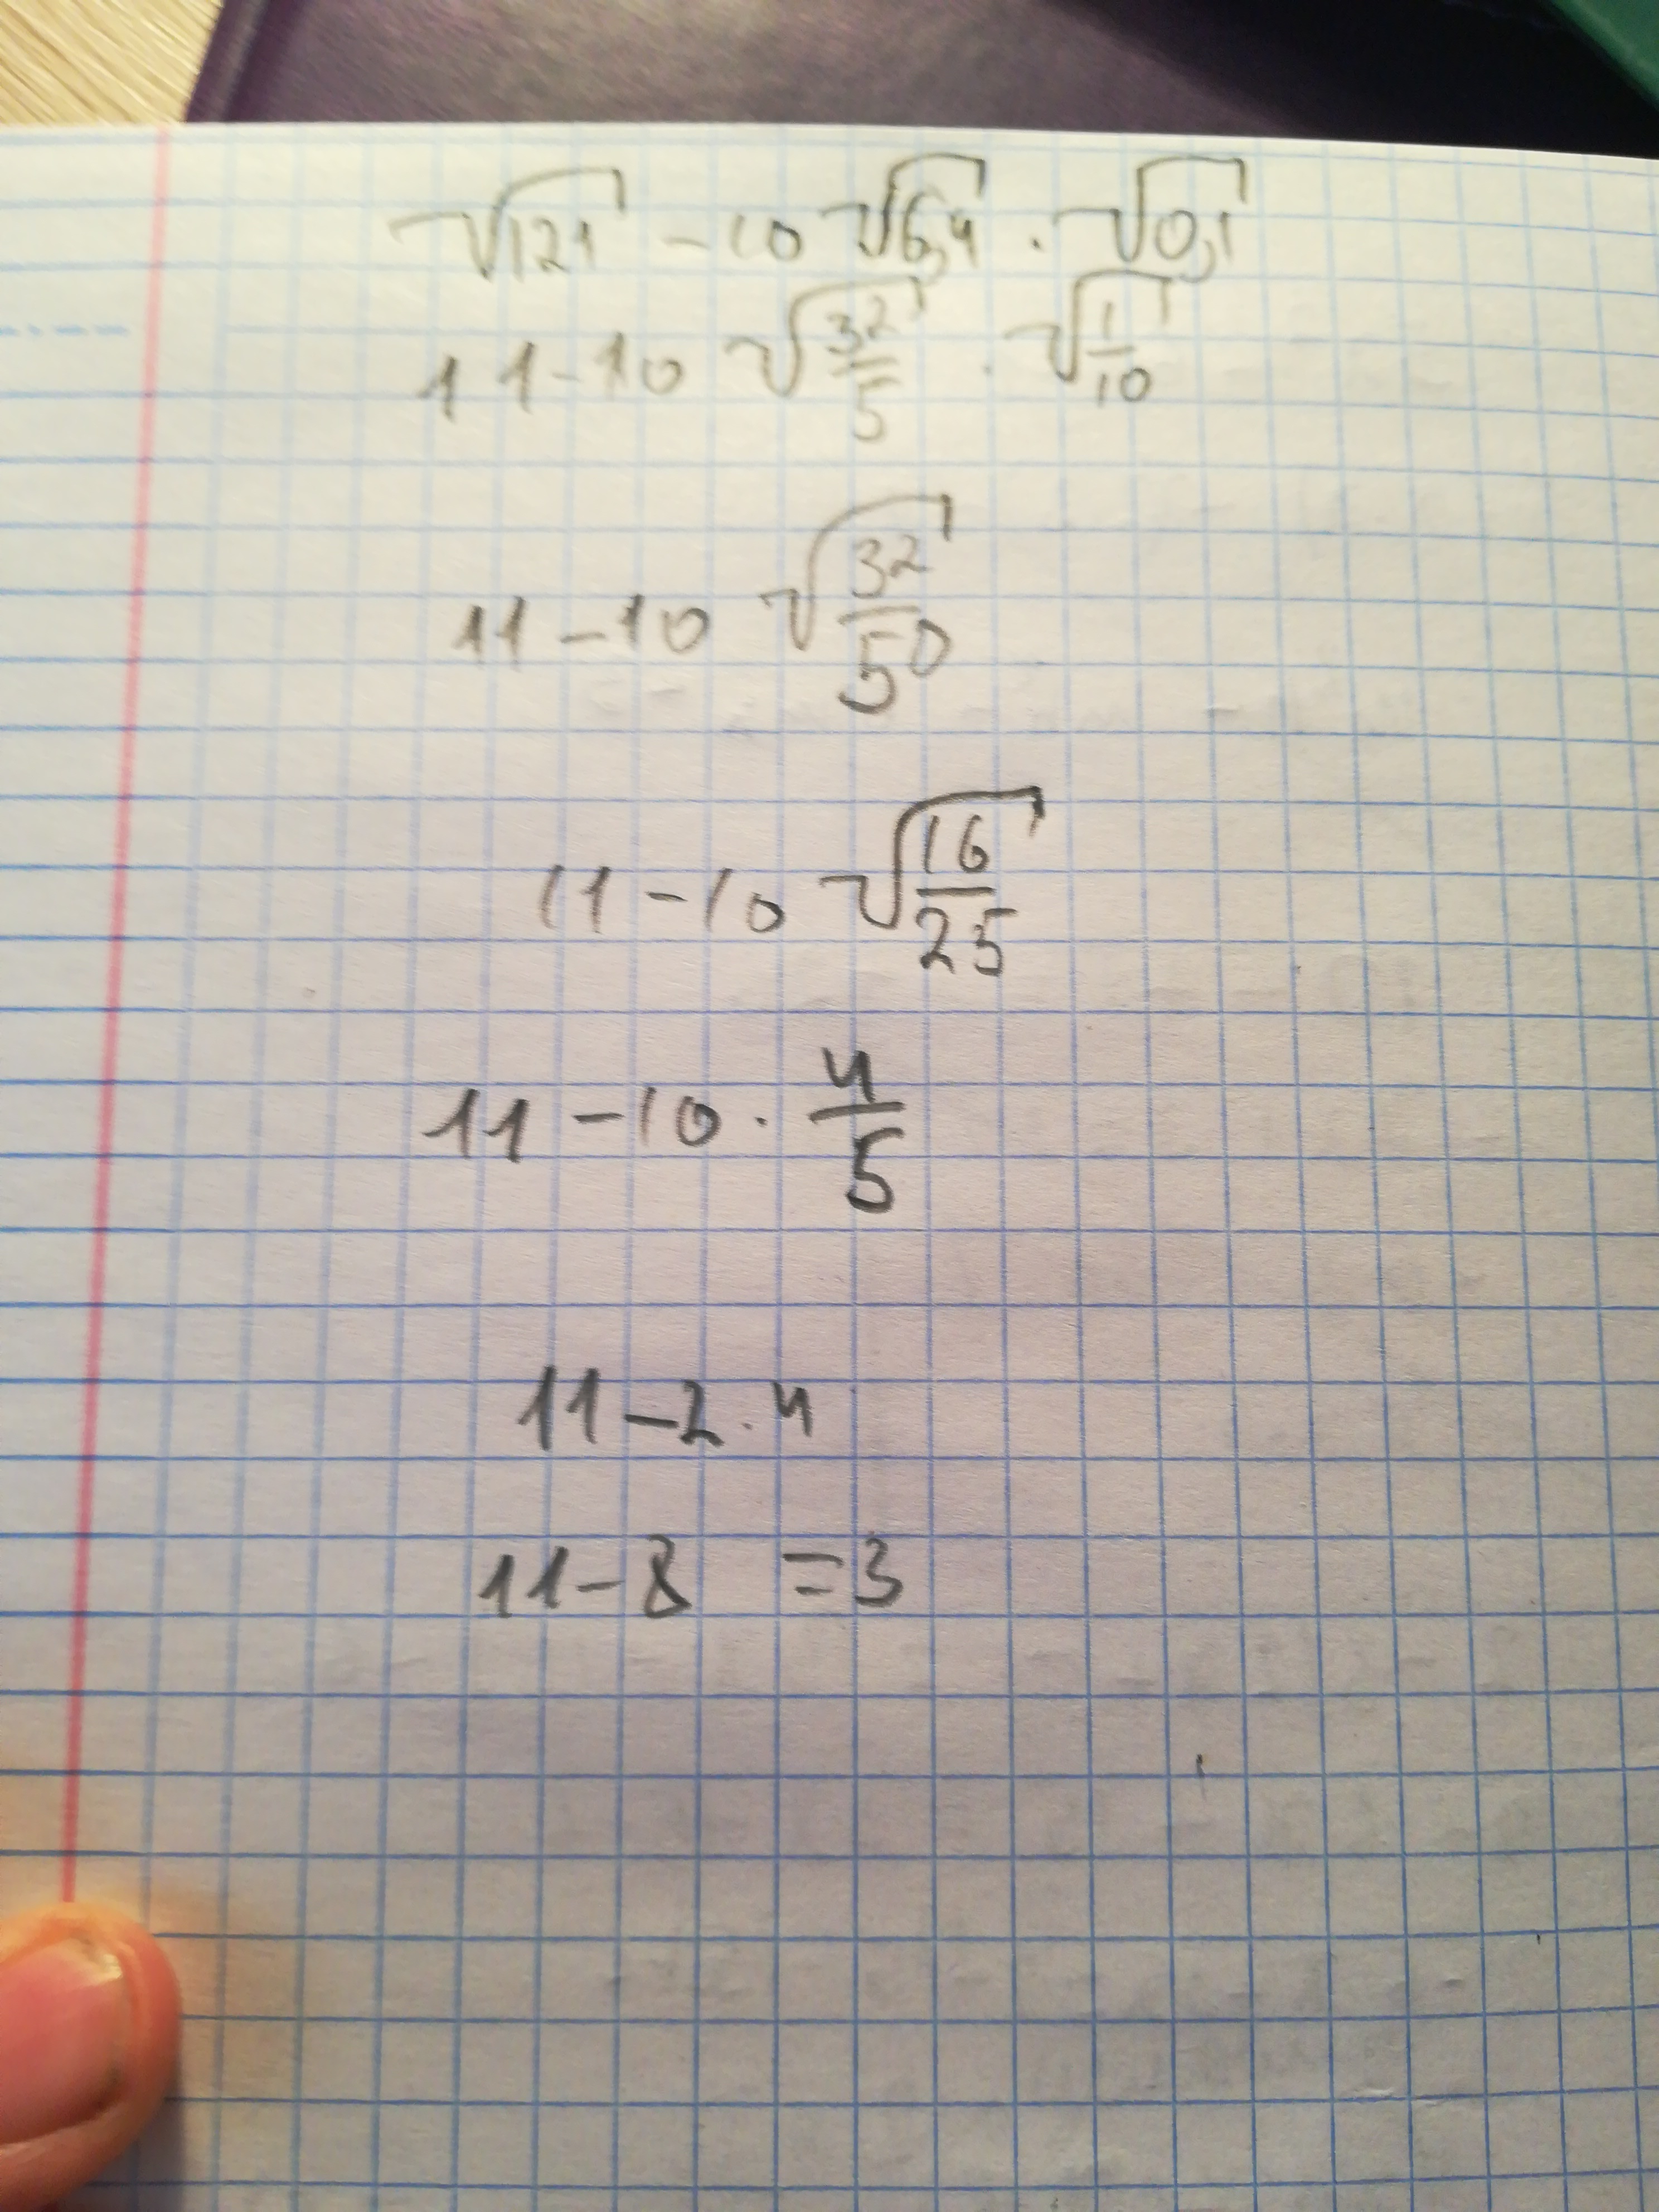 √121 - 10 √6,4 · √0,1
11 - 10 √32/5 · √1/10
11 - 10 √32/50
11 - 10 √16/25
11 - 10 · 4/5
11 - 2 · 4
11 - 8 = 3